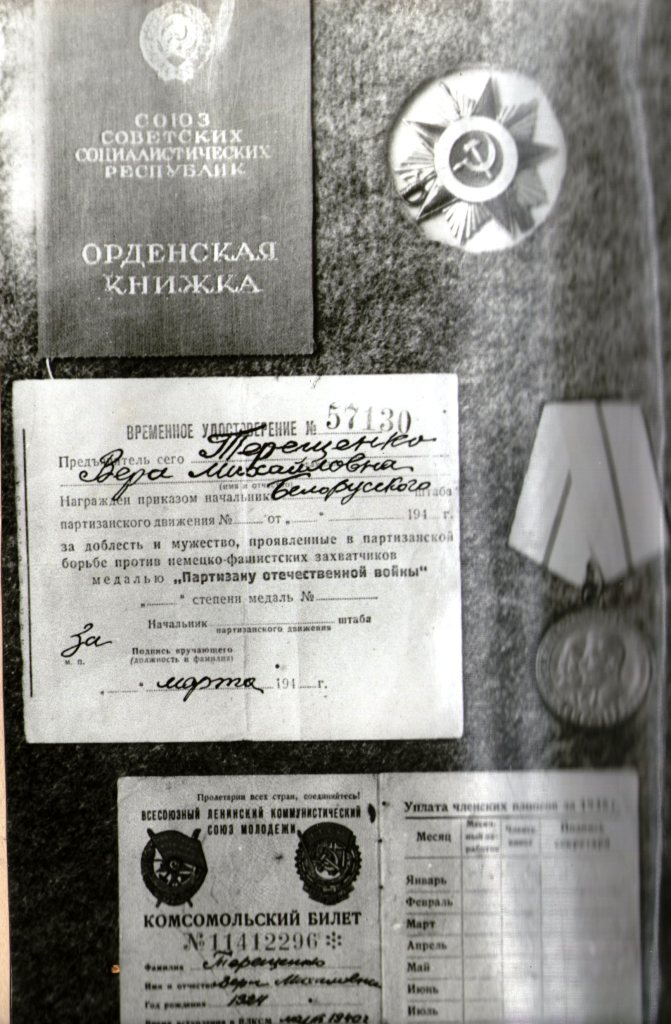 СОЮЗ
СОВЕТСКИХ
СОЦИАЛИСТИЧЕСКИХ
РЕСПУБЛИК
ОРДЕНСКАЯ
КНИЖКА
ВРЕМЕННОЕ УДОСТОВЕРЕНИЕ № 57130
Предъявитель сего Терещенко
Вера Михайловна
(имя и отчество)
Награжден приказом начальник Белорусского штаба
партизанского движения № от „ " 194 г.
за доблесть и мужество, проявленные в партизанской
борьбе против немецко-фашистских захватчиков
медалью „Партизану отечественной войны"
„ " степени медаль №
Начальник штаба
партизанского движения
За
Подпись вручающего
м. п. (должность и фамилия)
„ " марта 194 г.
Пролетарии всех стран, соединяйтесь!
ВСЕСОЮЗНЫЙ ЛЕНИНСКИЙ КОММУНИСТИЧЕСКИЙ
СОЮЗ МОЛОДЕЖИ
КОМСОМОЛЬСКИЙ БИЛЕТ
№ 11412296
Фамилия Терещенко
Имя и отчество Вера Михайловна
Год рождения 1924
Время вступления в ВЛКСМ март 1940 г
Уплата членских взносов за 194 г.
Месяц
Подпись
секретаря
Январь
Февраль
Март
Апрель
Май
Июнь
Июль